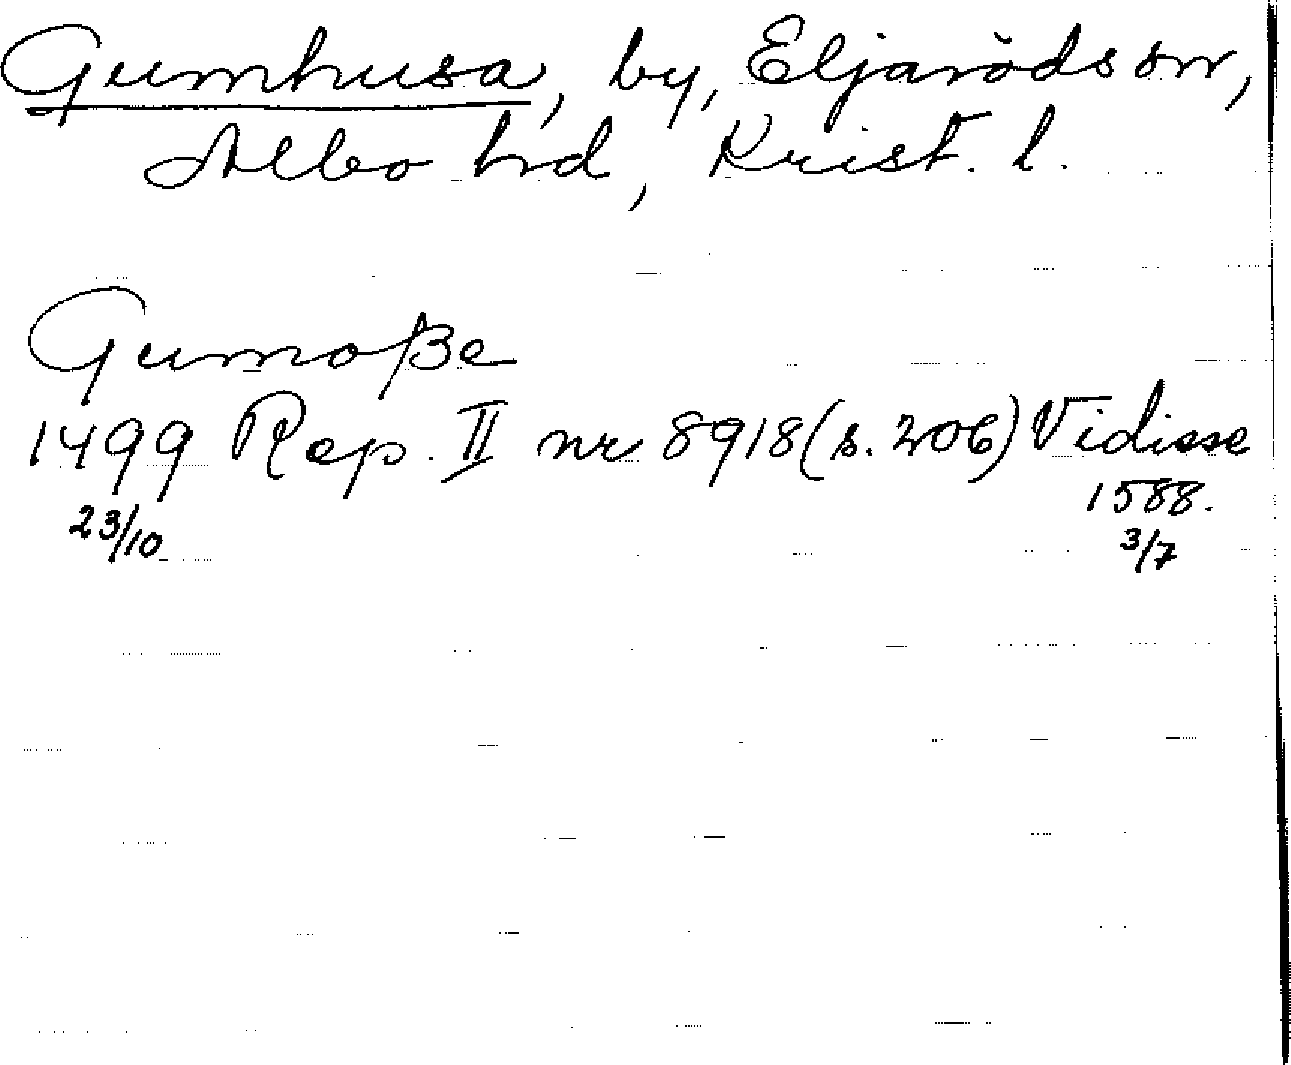 Gumhusa, by, Eljaröds sn,
Albo hd, Krist. l.
Gumoße
1499 Rep. II nr 8918 (s. 206) Vidisse
23/10 1588.
3/7